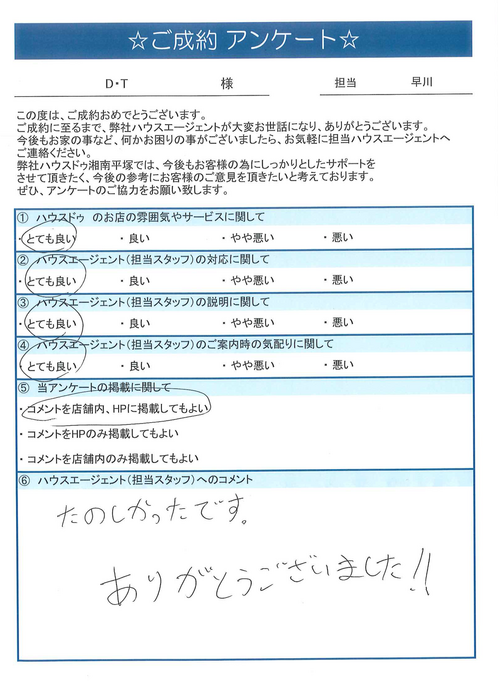 ☆ご成約 アンケート☆
D・T 様 担当 早川
この度は、ご成約おめでとうございます。
ご成約に至るまで、弊社ハウスエージェントが大変お世話になり、ありがとうございます。
今後もお家の事など、何かお困りの事がございましたら、お気軽に担当ハウスエージェントへ
ご連絡ください。
弊社ハウスドゥ湘南平塚では、今後もお客様の為にしっかりとしたサポートを
させて頂きたく、今後の参考にお客様のご意見を頂きたいと考えております。
ぜひ、アンケートのご協力をお願い致します。
① ハウスドゥ のお店の雰囲気やサービスに関して
・とても良い ・良い ・やや悪い ・悪い
② ハウスエージェント(担当スタッフ)の対応に関して
・とても良い ・良い ・やや悪い ・悪い
③ ハウスエージェント(担当スタッフ)の説明に関して
・とても良い ・良い ・やや悪い ・悪い
④ ハウスエージェント(担当スタッフ)のご案内時の気配りに関して
・とても良い ・良い ・やや悪い ・悪い
⑤ 当アンケートの掲載に関して
・コメントを店舗内、HPに掲載してもよい
・コメントをHPのみ掲載してもよい
・コメントを店舗内のみ掲載してもよい
⑥ ハウスエージェント(担当スタッフ)へのコメント
たのしかったです。
ありがとうございました!!